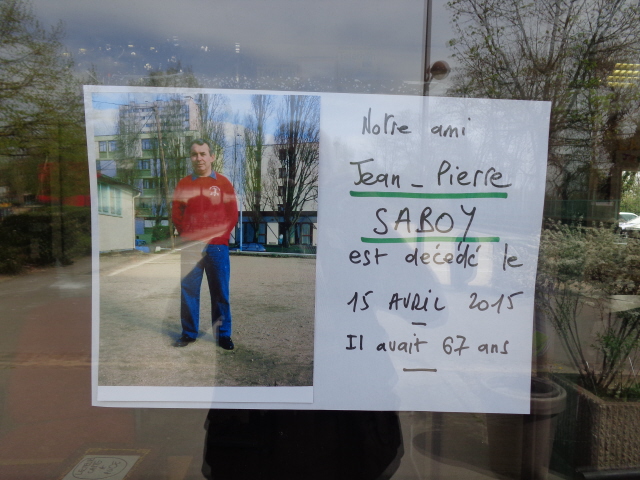 Notre ami
Jean-Pierre
SABOY
est décédé le
15 AVRIL 2015
Il avait 67 ans